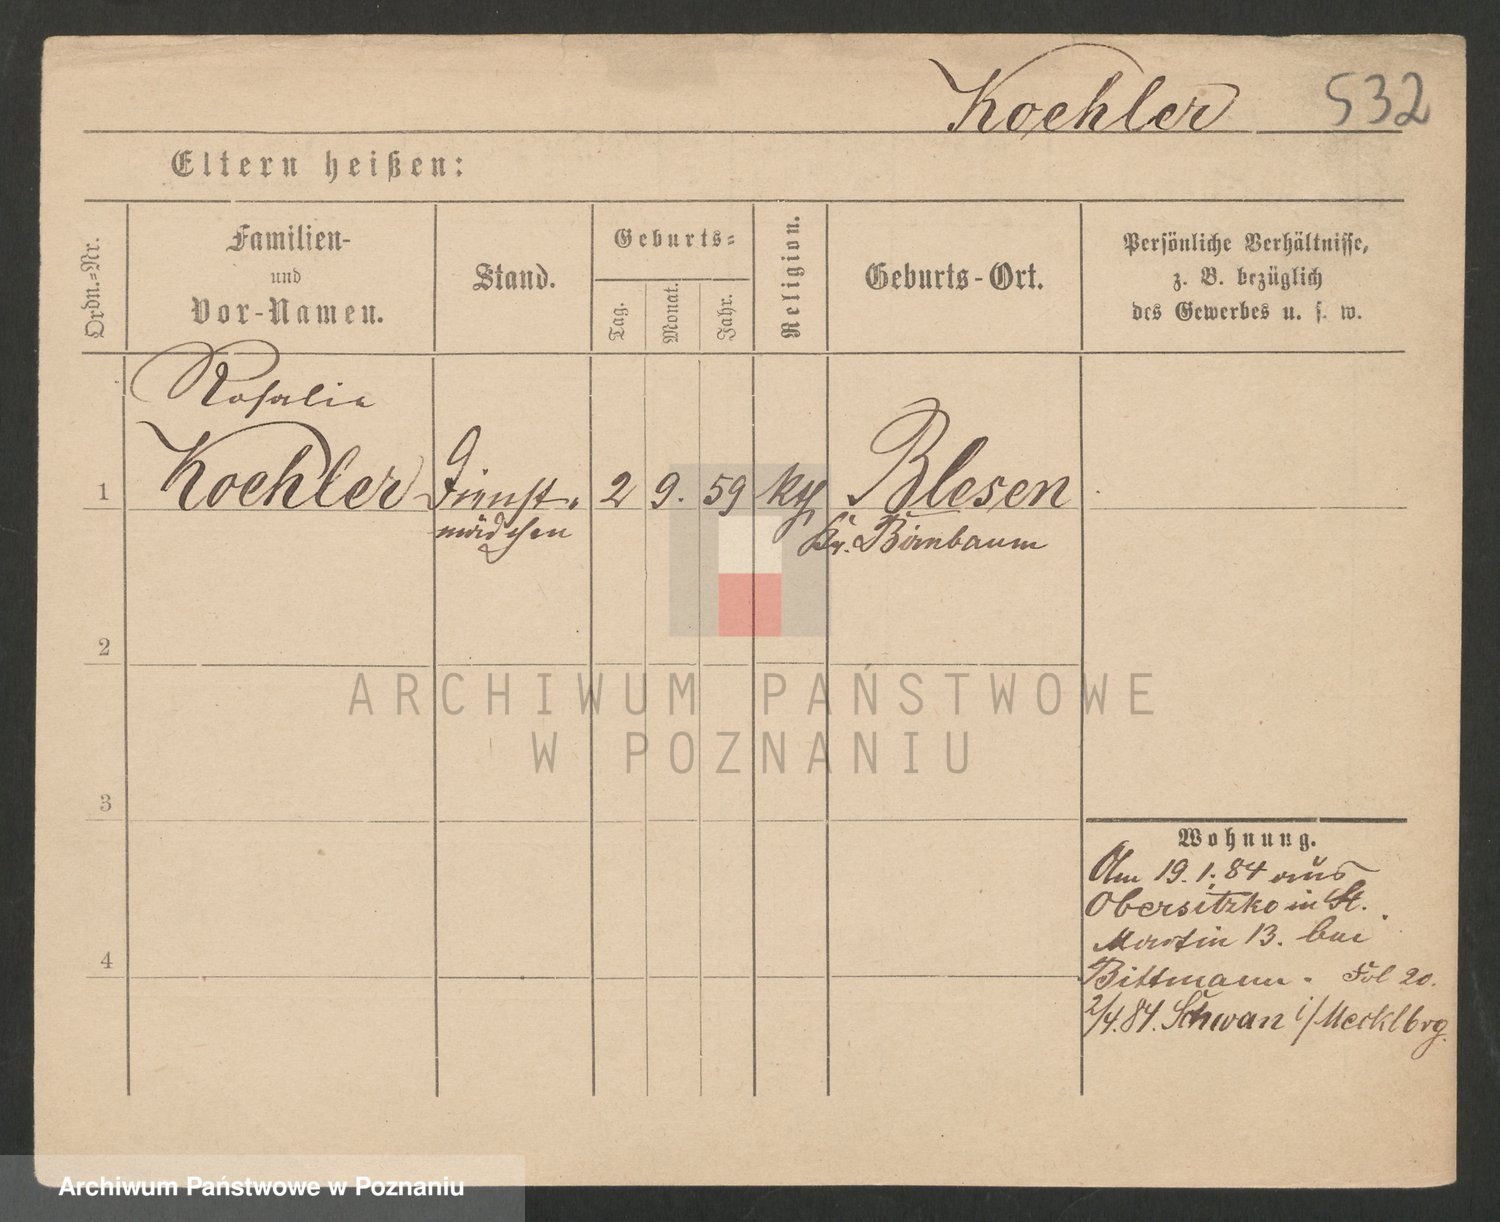 Koehler 532
Eltern heißen:
Ordn.-Nr.
Familien-
und
Vor-Namen.
Stand.
Geburts-
Tag.
Monat.
Jahr.
Religion.
Geburts-Ort.
Persönliche Verhältnisse,
z. B. bezüglich
des Gewerbes u. s. w.
Rosalie
1 Koehler Dienst- 2 9. 59 kth Blesen
mädchen Kr. Birnbaum
2
ARCHIWUM PAŃSTWOWE
W POZNANIU
3
Wohnung.
Am 19.1.84 aus
Obersitzko in St.
Martin 13. bei
4
Bittmann. Fol 20.
2/4.84. Schwan i/Mecklbrg.
Archiwum Państwowe w Poznaniu